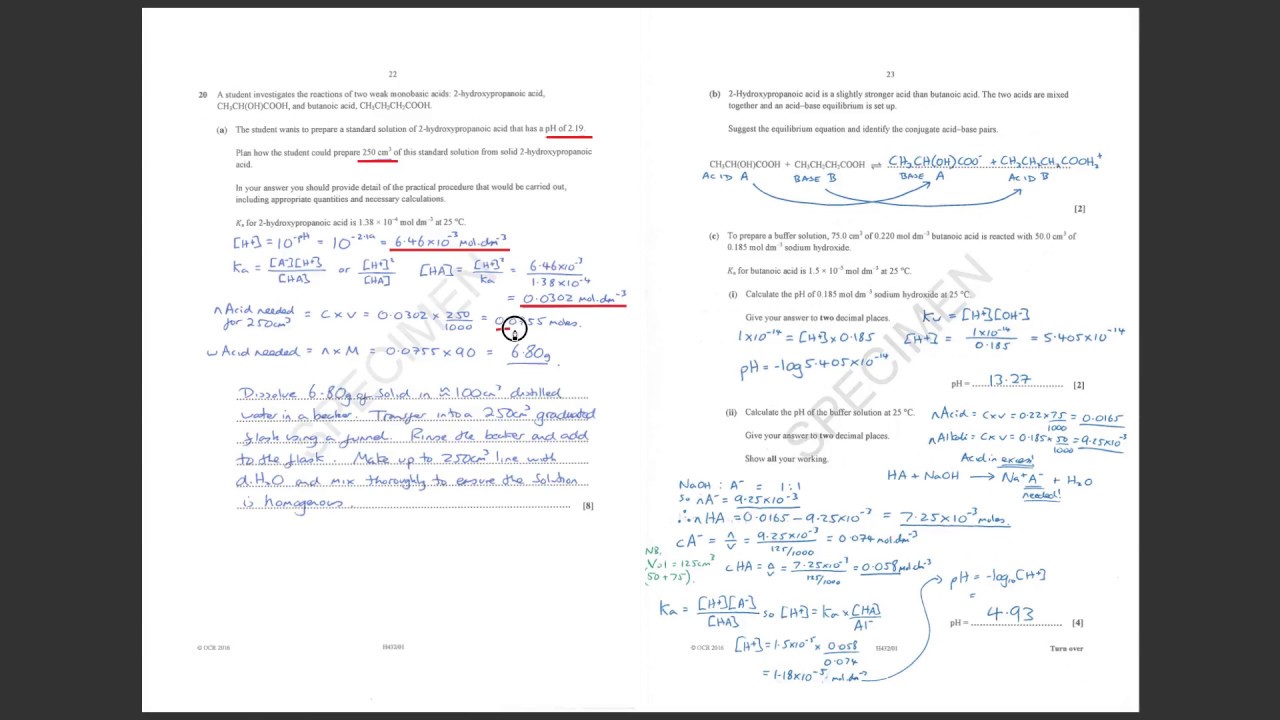 22
20 A student investigates the reactions of two weak monobasic acids: 2-hydroxypropanoic acid,
CH₃CH(OH)COOH, and butanoic acid, CH₃CH₂CH₂COOH.
(a) The student wants to prepare a standard solution of 2-hydroxypropanoic acid that has a pH of 2.19.
Plan how the student could prepare 250 cm³ of this standard solution from solid 2-hydroxypropanoic
acid.
In your answer you should provide detail of the practical procedure that would be carried out,
including appropriate quantities and necessary calculations.
Kₐ for 2-hydroxypropanoic acid is 1.38 × 10⁻⁴ mol dm⁻³ at 25 °C.
[H+] = 10^-pH = 10^-2.19 = 6.46×10⁻³ mol.dm⁻³
Ka = [A⁻][H+]/[HA] or [H+]²/[HA] [HA] = [H+]²/Ka = 6.46×10⁻³/1.38×10⁻⁴
= 0.0302 mol.dm⁻³
n Acid needed for 250cm³ = C×V = 0.0302 × 250/1000 = 0.0755 moles.
ω Acid needed = n×M = 0.0755×90 = 6.80g
Dissolve 6.80g of solid in ≈100cm³ distilled
water in a beaker. Transfer into a 250cm³ graduated
flask using a funnel. Rinse the beaker and add
to the flask. Make up to 250cm³ line with
d.H₂O and mix thoroughly to ensure the solution
is homogenous.
[8]
© OCR 2016 H432/01
SPECIMEN
23
(b) 2-Hydroxypropanoic acid is a slightly stronger acid than butanoic acid. The two acids are mixed
together and an acid–base equilibrium is set up.
Suggest the equilibrium equation and identify the conjugate acid–base pairs.
CH₃CH(OH)COOH + CH₃CH₂CH₂COOH ⇌ CH₃CH(OH)COO⁻ + CH₃CH₂CH₂COOH₂⁺
ACID A BASE B BASE A ACID B
[2]
(c) To prepare a buffer solution, 75.0 cm³ of 0.220 mol dm⁻³ butanoic acid is reacted with 50.0 cm³ of
0.185 mol dm⁻³ sodium hydroxide.
Kₐ for butanoic acid is 1.5 × 10⁻⁵ mol dm⁻³ at 25 °C.
(i) Calculate the pH of 0.185 mol dm⁻³ sodium hydroxide at 25 °C.
Give your answer to two decimal places. Kw = [H+][OH-]
1×10⁻¹⁴ = [H+] × 0.185 [H+] = 1×10⁻¹⁴/0.185 = 5.405×10⁻¹⁴
pH = -log 5.405×10⁻¹⁴
pH = 13.27 [2]
(ii) Calculate the pH of the buffer solution at 25 °C. n Acid = C×V = 0.22×75/1000 = 0.0165
Give your answer to two decimal places. n Alkali = C×V = 0.185×50/1000 = 9.25×10⁻³
Show all your working. Acid in excess!
HA + NaOH → Na⁺A⁻ + H₂O
needed!
NaOH : A⁻ = 1:1
so nA⁻ = 9.25×10⁻³
∴ nHA = 0.0165 – 9.25×10⁻³ = 7.25×10⁻³ moles.
cA⁻ = n/v = 9.25×10⁻³/125/1000 = 0.074 mol.dm⁻³
NB. Vol = 125cm³ (50+75).
cHA = n/v = 7.25×10⁻³/125/1000 = 0.058 mol dm⁻³
Ka = [H+][A⁻]/[HA] so [H+] = Ka × [HA]/A⁻
[H+] = 1.5×10⁻⁵ × 0.058/0.074
= 1.18×10⁻⁵ mol.dm⁻³
pH = -log₁₀[H+]
=
pH = 4.93 [4]
© OCR 2016 H432/01 Turn over
SPECIMEN